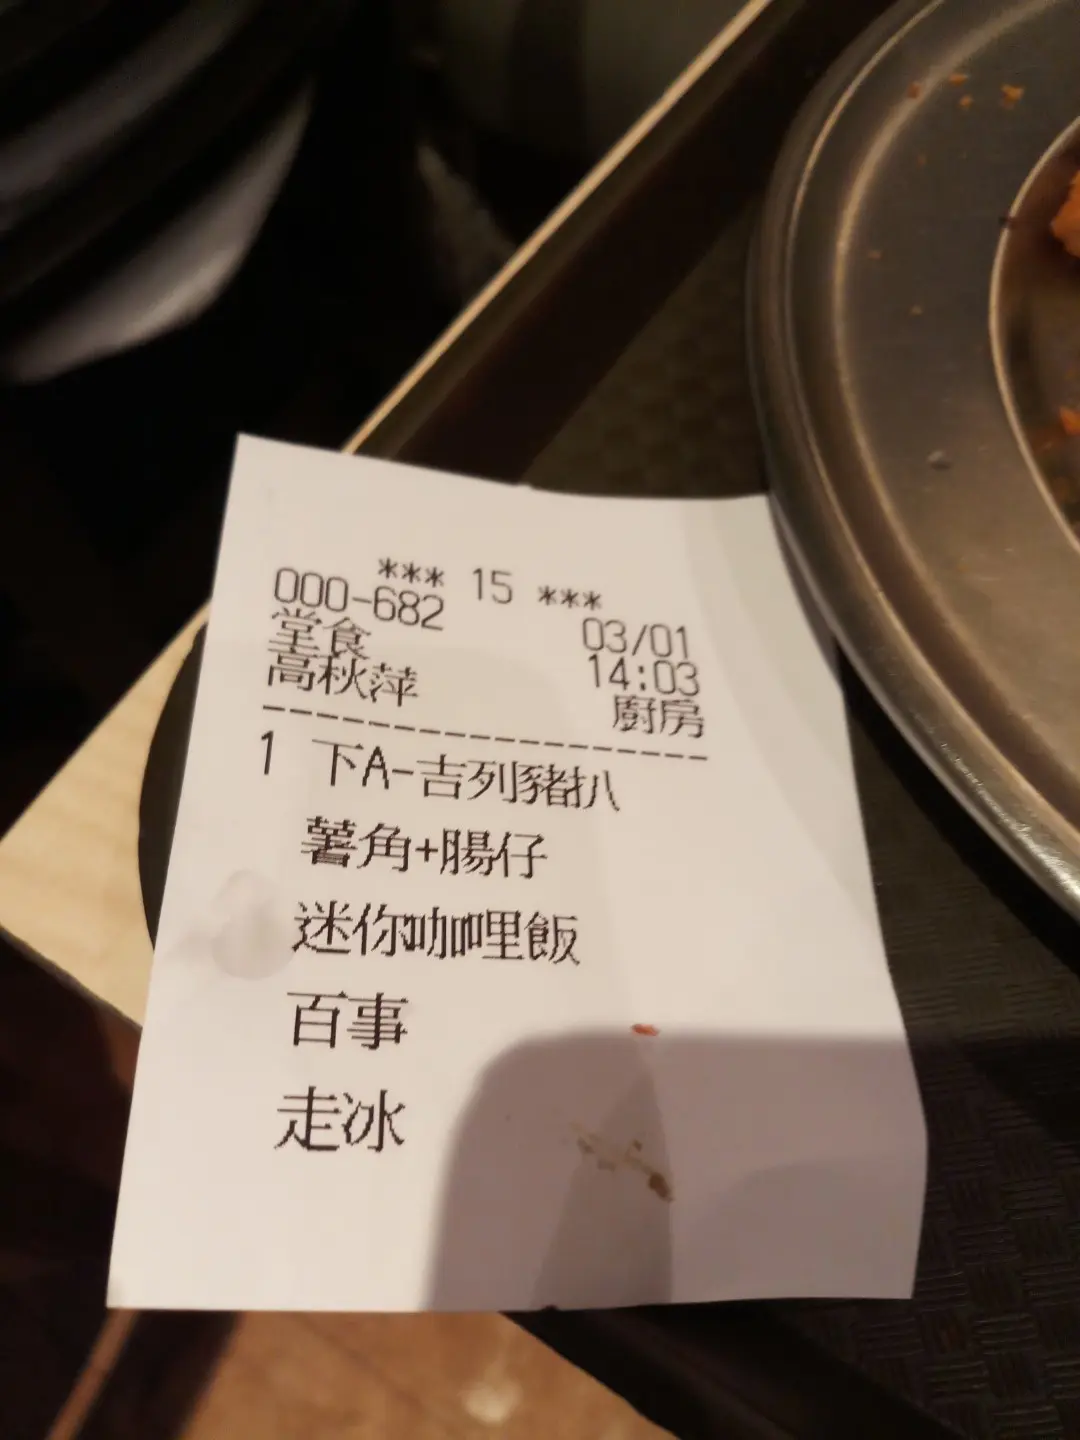 *** 15 ***
000-682
03/01
堂食
14:03
高秋萍
廚房
1 下A-吉列豬扒
薯角+腸仔
迷你咖哩飯
百事
走冰